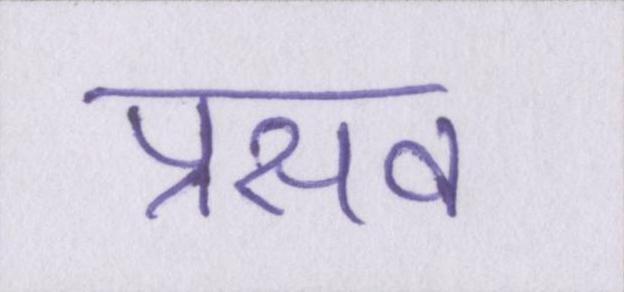 प्रसव